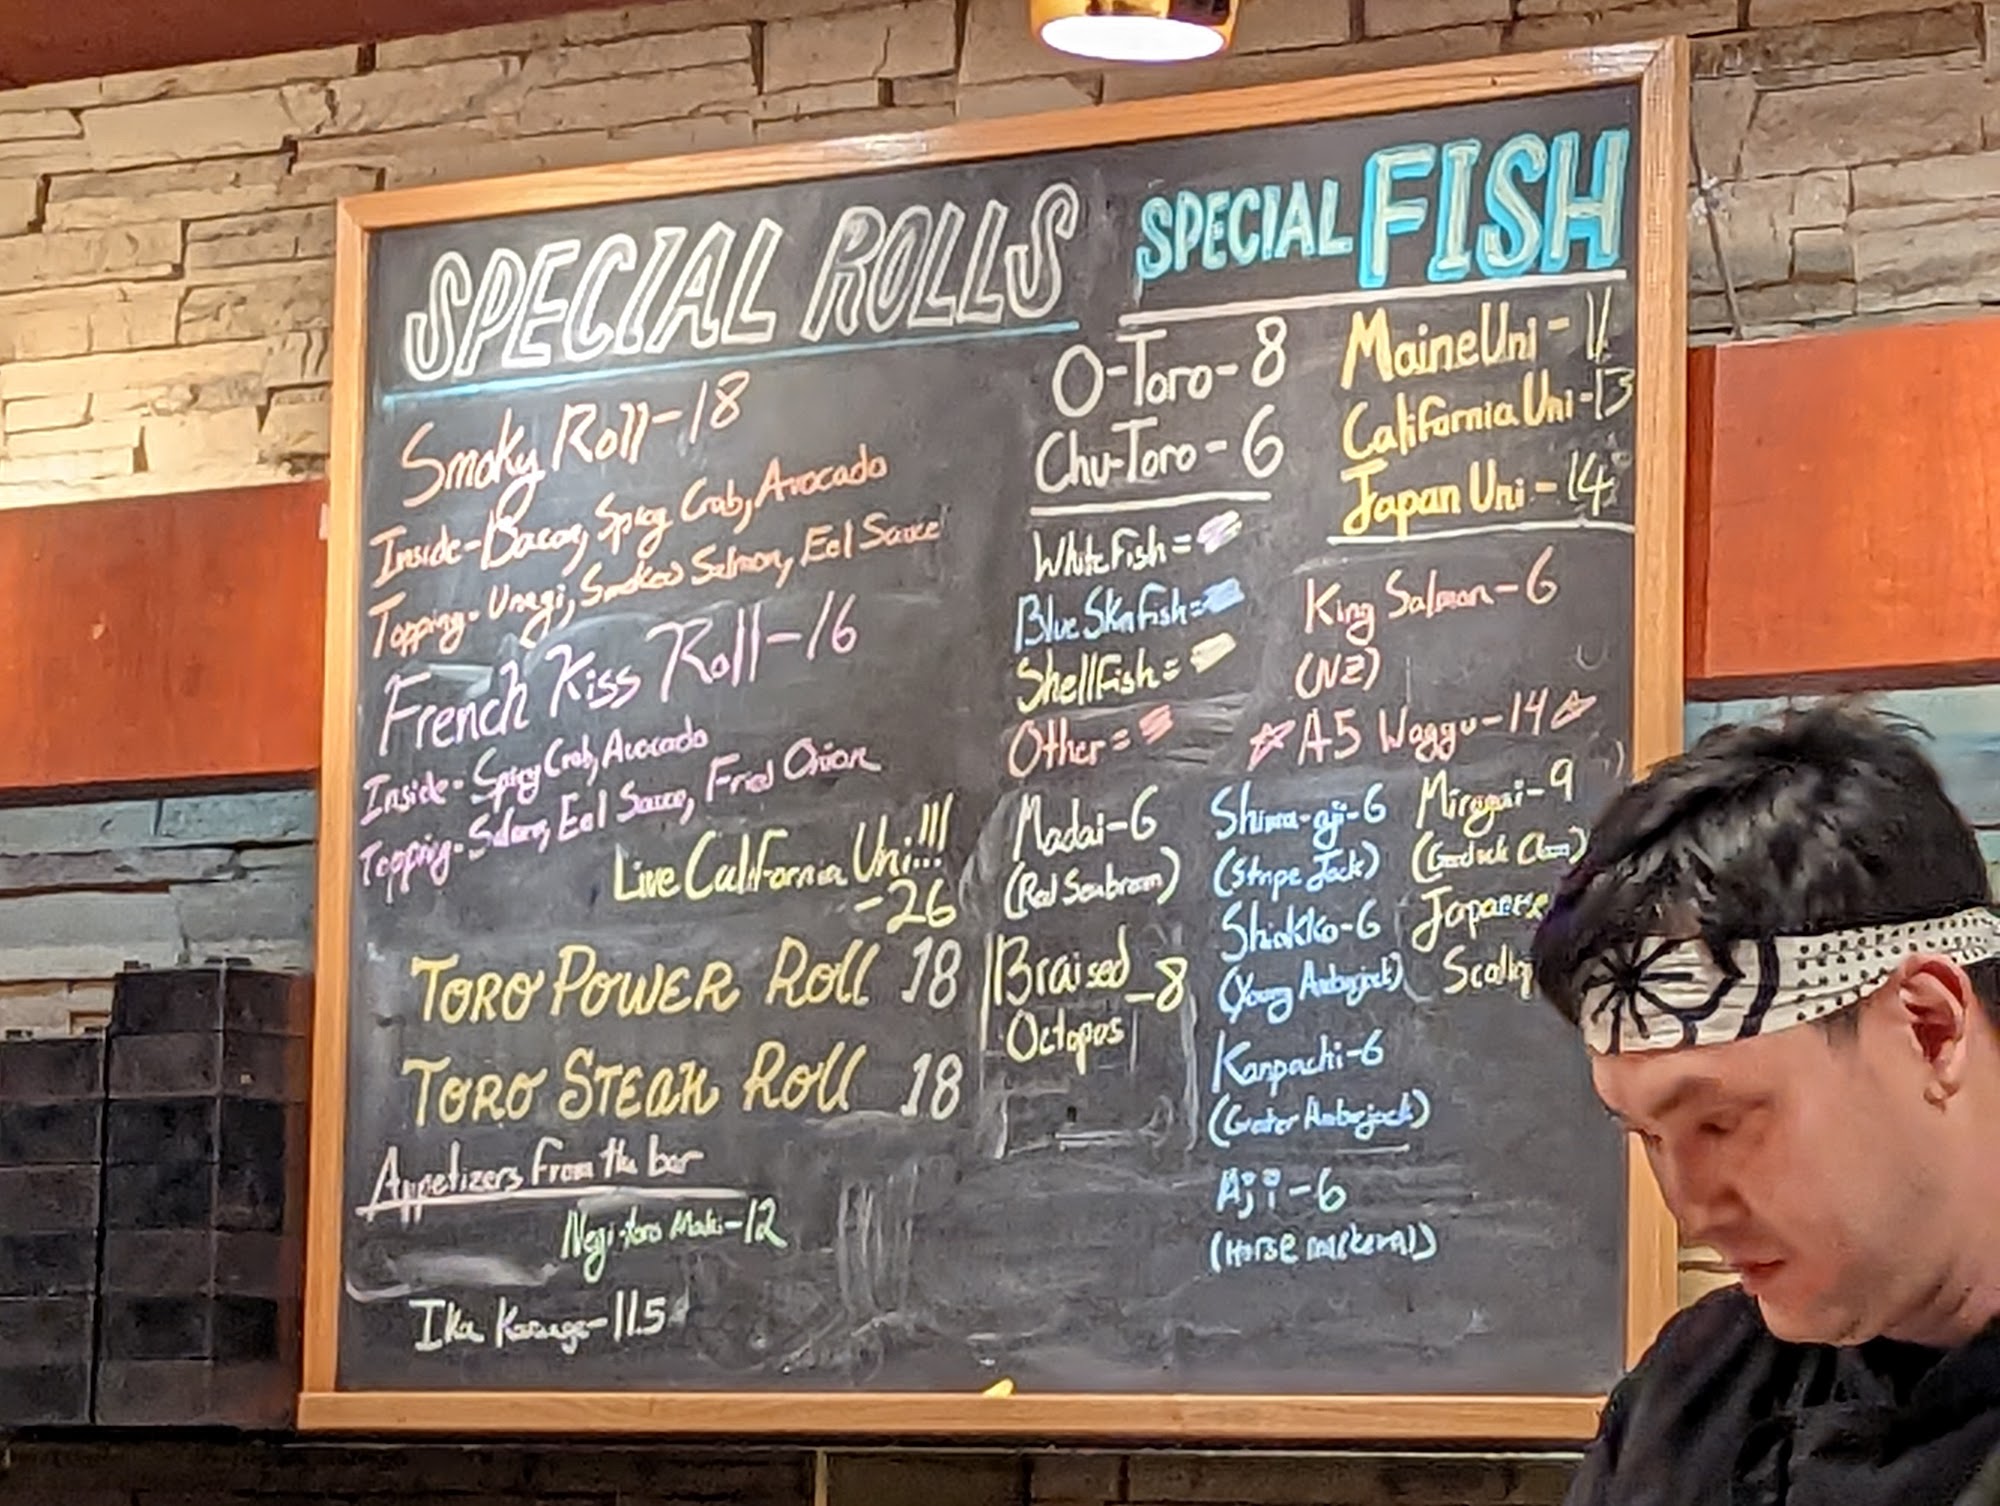 SPECIAL ROLLS
Smoky Roll-18
Inside-Bacon, Spicy Crab, Avocado
Topping-Unagi, Smoked Salmon, Eel Sauce
French Kiss Roll-16
Inside-Spicy Crab, Avocado
Topping-Salmon, Eel Sauce, Fried Onion
Live California Uni!!!
-26
TORO POWER Roll 18
TORO STEAK Roll 18
Appetizers From the bar
Negi-toro Maki-12
Ika Karaage-11.5
SPECIAL FISH
O-Toro-8
Chu-Toro-6
Maine Uni-11
California Uni-13
Japan Uni-14
White Fish=
Blue Skn Fish=
Shellfish=
Other=
King Salmon-6
(NZ)
A5 Waggu-14
Madai-6
(Red Seabream)
Braised
Octopus -8
Shima-aji-6
(Stripe Jack)
Shiokko-6
(Young Amberjack)
Kanpachi-6
(Greater Amberjack)
Aji-6
(Horse mackeral)
Mirugai-9
(Geoduck Clam)
Japanese